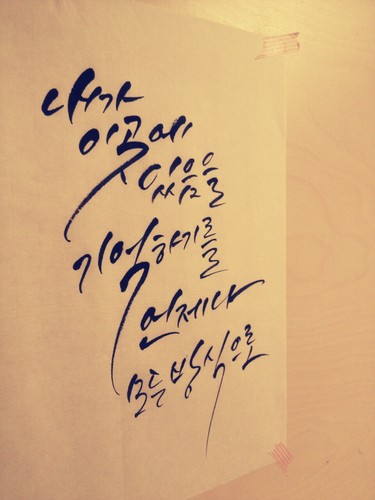 내가
이곳에
있음을
기억하기를
언제나
모든 방식으로